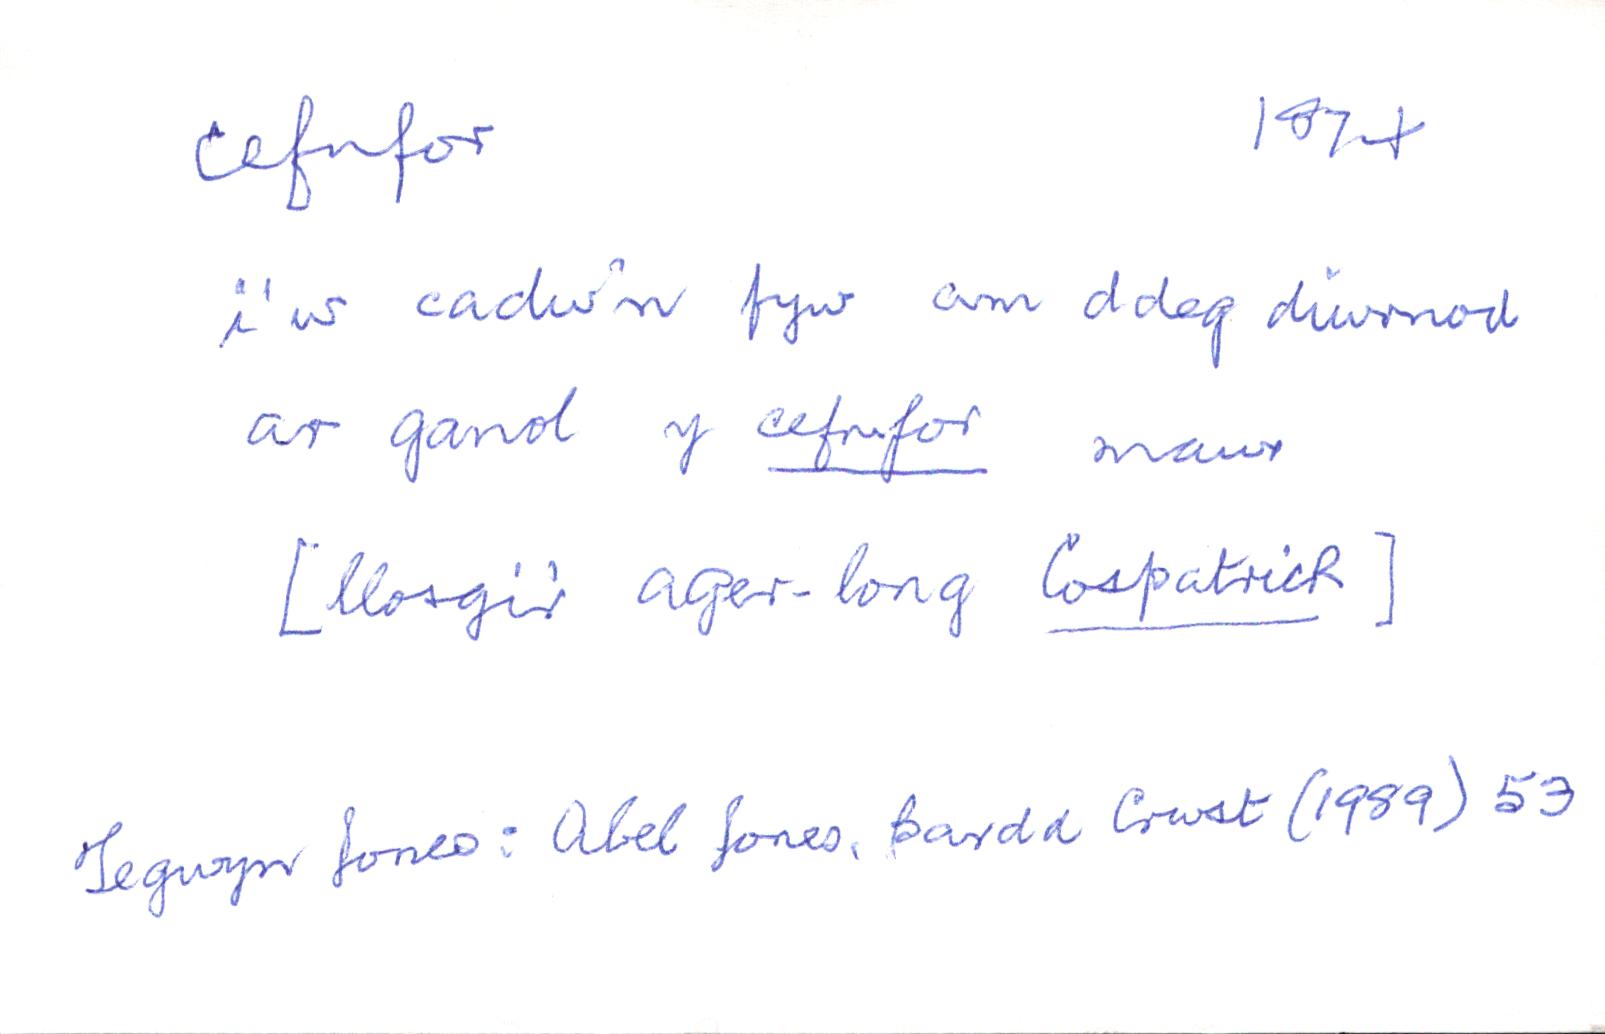 cefnfor 1874
i'w cadw'n fyw am ddeg diwrnod
ar ganol y cefnfor mawr
[llosgi'r ager-long Cospatrick]
Tegwyn Jones: Abel Jones, Bardd Crwst (1989) 53